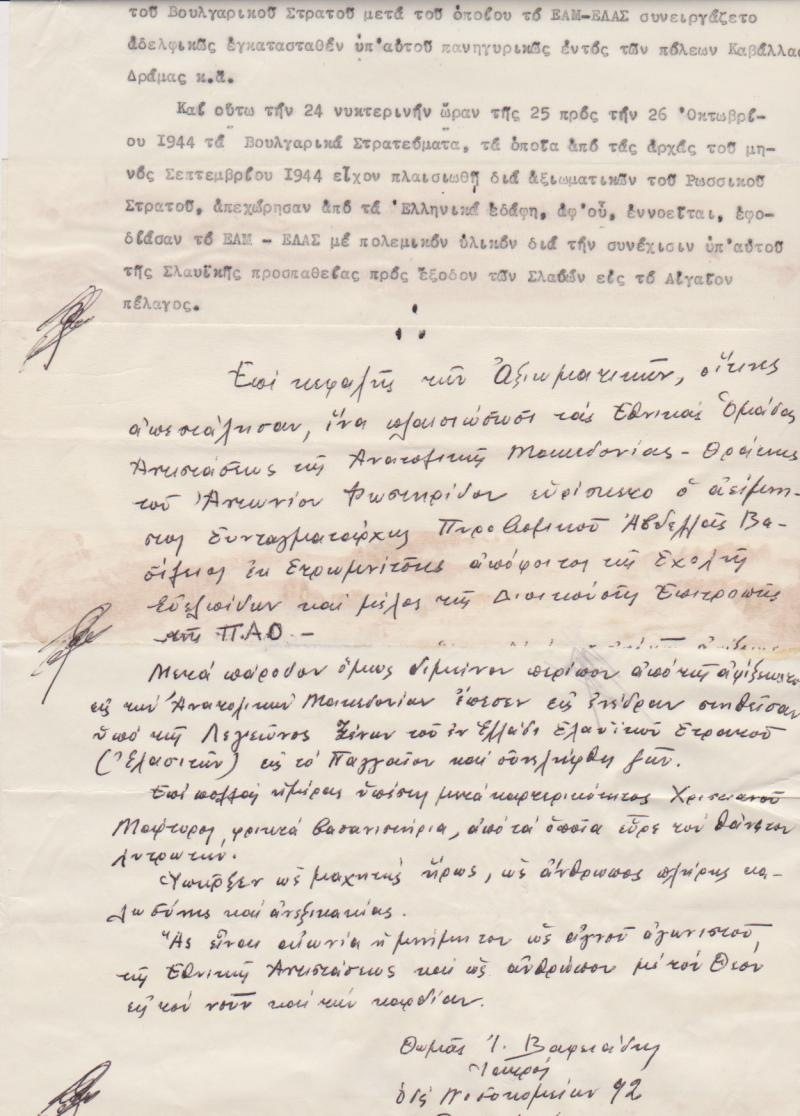 τοῦ Βουλγαρικοῦ Στρατοῦ μετά τοῦ ὁποίου τό ΕΑΜ-ΕΛΑΣ συνειργάζετο
ἀδελφικῶς ἐγκατασταθέν ὑπ'αὐτοῦ πανηγυρικῶς ἐντός τῶν πόλεων Καβάλλας
Δράμας κ.ἄ.
Καί οὕτω τήν 24 νυκτερινήν ὥραν τῆς 25 πρός τήν 26 Ὀκτωβρί-
ου 1944 τά Βουλγαρικά Στρατεύματα, τά ὁποῖα ἀπό τάς ἀρχάς τοῦ μη-
νός Σεπτεμβρίου 1944 εἶχον πλαισιωθῆ διά ἀξιωματικῶν τοῦ Ρωσσικοῦ
Στρατοῦ, ἀπεχώρησαν ἀπό τά Ἑλληνικά ἐδάφη, ἀφ'οὗ, ἐννοεῖται, ἐφο-
δίασαν τό ΕΑΜ - ΕΛΑΣ μέ πολεμικόν ὑλικόν διά τήν συνέχισιν ὑπ'αὐτοῦ
τῆς Σλαυϊκῆς προσπαθείας πρός ἔξοδον τῶν Σλαύων εἰς τό Αἰγαῖον
πέλαγος.
Ἐπί κεφαλῆς τῶν Ἀξιωματικῶν, οἵτινες
ἀπεστάλησαν, ἵνα πλαισιώσωσι τάς Ἐθνικάς Ὁμάδας
Ἀντιστάσεως τῆς Ἀνατολικῆς Μακεδονίας - Θράκης
τοῦ Ἀντωνίου Φωστηρίδου εὑρίσκετο ὁ ἀείμνη-
στος Συνταγματάρχης Πυροβολικοῦ Ἀβδελλᾶς Βα-
σίλειος ἐκ Στρωμνίτσης ἀπόφοιτος τῆς Σχολῆς
Εὐελπίδων καί μέλος τῆς Διοικούσης Ἐπιτροπῆς
τῆς Π.Α.Ο. -
Μετά πάροδον ὅμως διμήνου περίπου ἀπό τῆς ἀφίξεως του
εἰς τήν Ἀνατολικήν Μακεδονίαν ἔπεσεν εἰς ἐνέδραν στηθεῖσαν
ὑπό τῆς Λεγεῶνος Ξένων τοῦ ἐν Ἑλλάδι Στρατοῦ
(Ἐλασιτῶν) εἰς τό Παγγαῖον καί συνελήφθη ζῶν.
Ἐπί πολλάς ἡμέρας ὑπέστη μετά καρτερικότητος Χριστιανοῦ
Μάρτυρος, φρικτά βασανιστήρια, ἀπό τά ὁποῖα εὗρε τόν θάνατον
λυτρωτήν.
Ὑπῆρξεν ὡς μαχητής ἥρως, ὡς ἄνθρωπος πλήρης κα-
λωσύνης καί ἀνεξικακίας.
Ἄς εἶναι αἰωνία ἡ μνήμη του ὡς ἁγνοῦ ἀγωνιστοῦ
τῆς Ἐθνικῆς Ἀντιστάσεως καί ὡς ἀνθρώπου μέ τόν Θεόν
εἰς τόν νοῦν καί τήν καρδίαν.
Θωμᾶς Ἰ. Βαφειάδης
Ἰατρός
ὁδός Νοσοκομείων 92